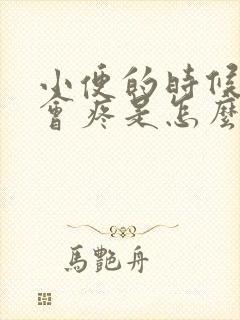 小便的時候
會疼是怎麼
馬艷舟